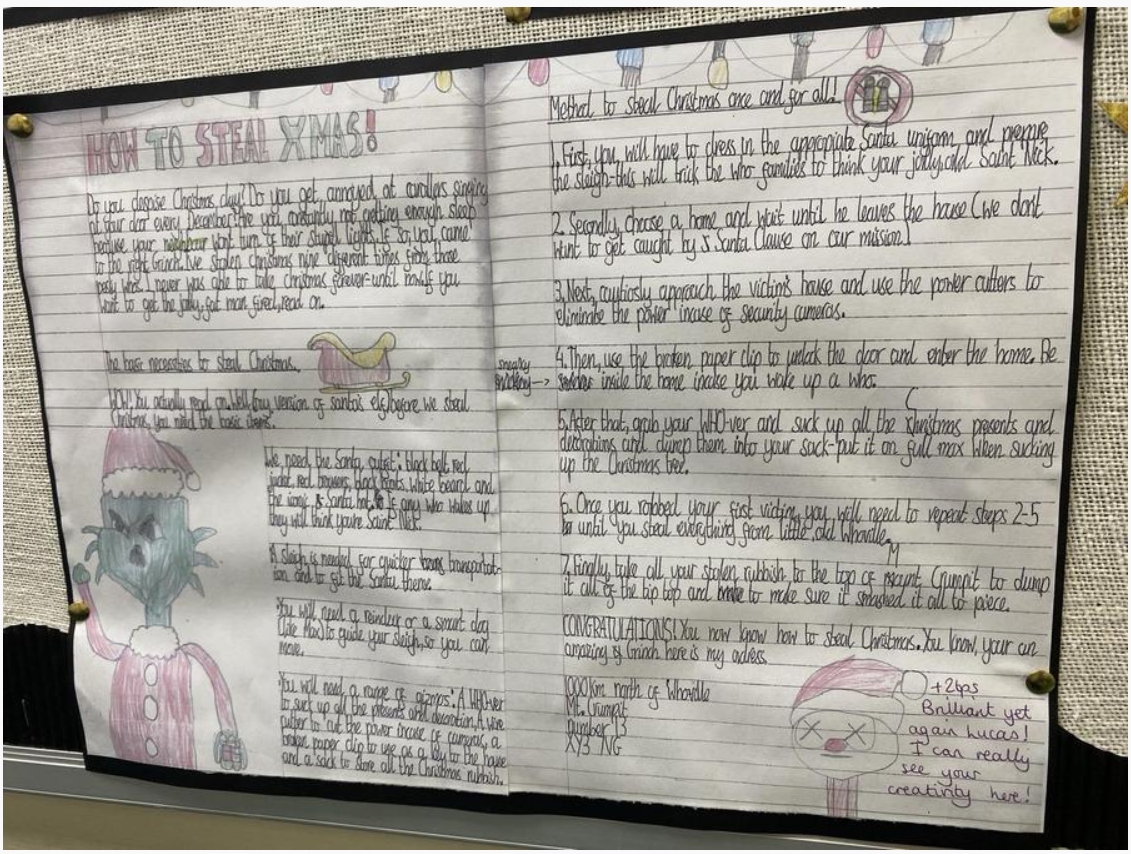 HOW TO STEAL XMAS!
Do you despise Christmas day? Do you get, annoyed, at carollers singing
at your door every December? Are you, constantly not getting enough sleep
because your neighbour wont turn of their stupid lights. If so, you came
to the right Grinch. I've stolen Christmas nine different times from those
pesky who's. I never was able to take Christmas forever-until now. If you
want to get the jolly, fat man fired, read on.
The basic necessities to steal Christmas.
WOW! You actually read on. Well, my version of santa's elf, before we steal
Christmas, you need the basic items.
We need the Santa, outfit: black belt, red
jacket, red trousers, black boots. White beard and
the iconic Santa hat. If any who wakes up
they will think you're Saint Nick.
A sleigh is needed for quicker transportat-
ion and to fit the Santa theme.
You will need a reindeer or a smart dog
(like Max) to guide your sleigh, so you can
move.
You will need a range of gizmos: A WHO-ver
to suck up all the presents and decoration. A wire
cutter to cut the power incase of cameras, a
broken paper clip to use as a key to the house
and a sack to store all the Christmas rubbish.
Method to steal Christmas once and for all!
1. First, you, will have to dress in the appropiate Santa uniform, and prepare
the sleigh-this will trick the who families to think your jolly, old Saint Nick.
2. Secondly, choose a home and wait until he leaves the house (we dont
want to get caught by Santa Clause on our mission)
3. Next, cautiosly approach the victim's house and use the power cutters to
eliminate the power incase of security cameras.
4. Then, use the broken paper clip to unlock the door and enter the home. Be
sneaky
inside the home incase you wake up a who.
5. After that, grab your WHO-ver and suck up all the Christmas presents and
decorations and dump them into your sack-put it on full max when sucking
up the Christmas tree.
6. Once you robbed your first victim, you will need to repeat steps 2-5
until you steal everything from little, old Whoville.
7. Finally, take all your stolen rubbish to the top of Mount Crumpit to dump
it all of the tip top and make to make sure it smashed it all to piece.
CONGRATULATIONS! You now know how to steal Christmas. You know, your an
amazing Grinch here is my adress.
1000km north of Whoville
Mt. Crumpit
number 13
XY3 NG
+2tps
Brilliant yet
again Lucas!
I can really
see your
creativity here!